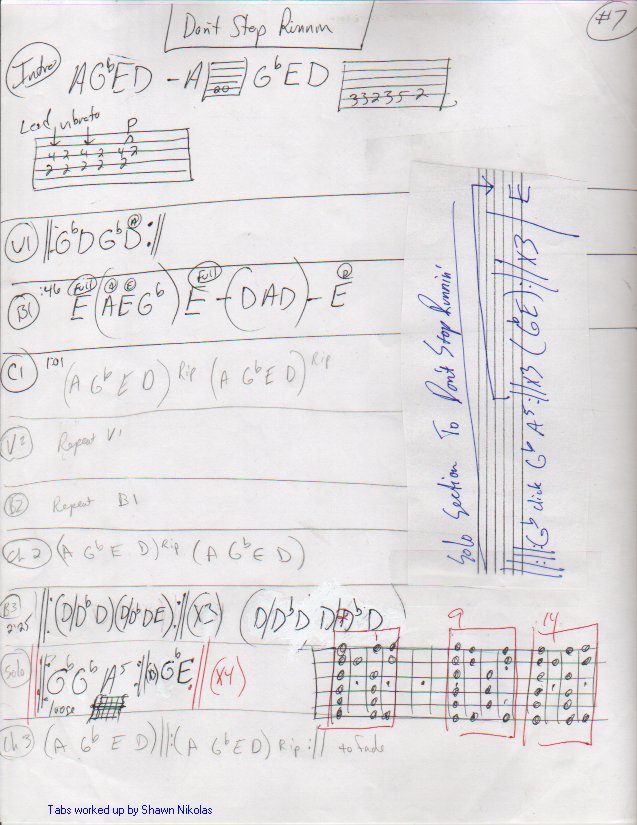 Don't Stop Runnin
#7
Intro AGbED - A 20 GbED 332352
Lead vibrato P
4 2 4 2 4 2
2 2 2 2 2
V1 ||:GbDGbD:|| A
B1 :46 E Full (A E Gb) E Full - (DAD) - E
C1 1:01 (A Gb E D) Rip (A Gb E D) Rip
V2 Repeat V1
B2 Repeat B1
Ch 2 (A Gb E D) Rip (A Gb E D)
B3 2:25 ||:(D/Db D)(D/Db DE):||(X3) (D/Db D
Solo ||:Gb Gb A5:|| Gb E :|| (X4)
loose
9 14
Ch 3 (A Gb E D)||:(A Gb E D) Rip :|| to Fade
Solo Section To Don't Stop Runnin'
||:Gb click Gb A5:||X3 (GbE):||X3 / E
Tabs worked up by Shawn Nikolas